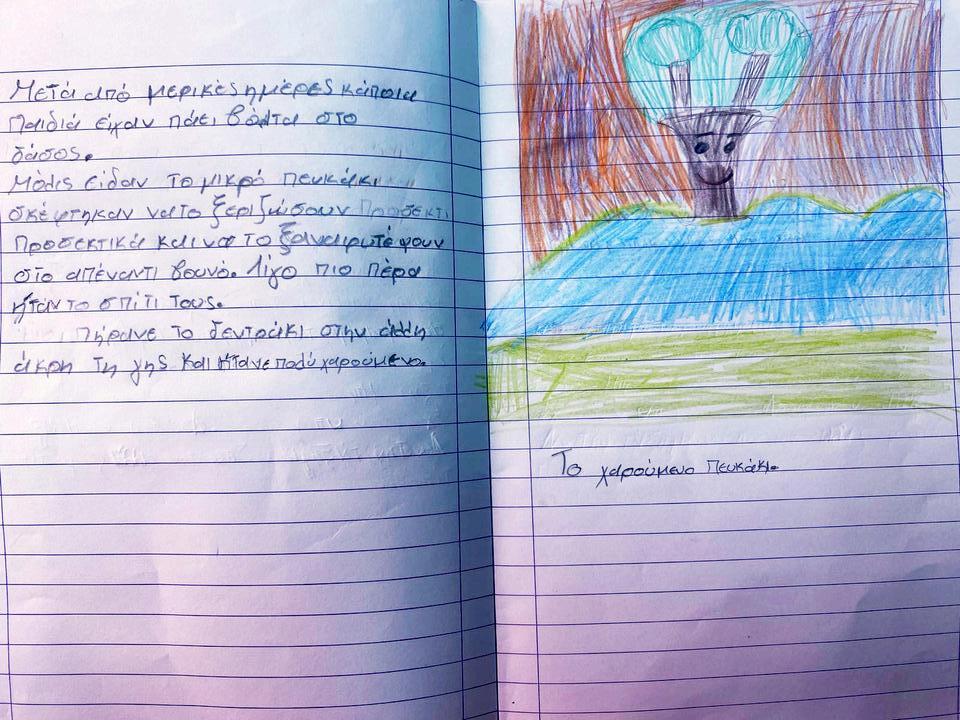 Μετά από μερικές ημέρες κάποια
Παιδιά είχαν πάει βόλτα στο
δάσος.
Μόλις είδαν το μικρό πευκάκι
σκέφτηκαν να το ξεριζώσουν
Προσεκτικά και να το ξαναφυτέψουν
στο απέναντι βουνό. Λίγο πιο πέρα
ήταν το σπίτι τους.
Πήρανε το δεντράκι στην άλλη
άκρη τη γης και ήτανε πολύ χαρούμενο.
Το χαρούμενο πευκάκι.